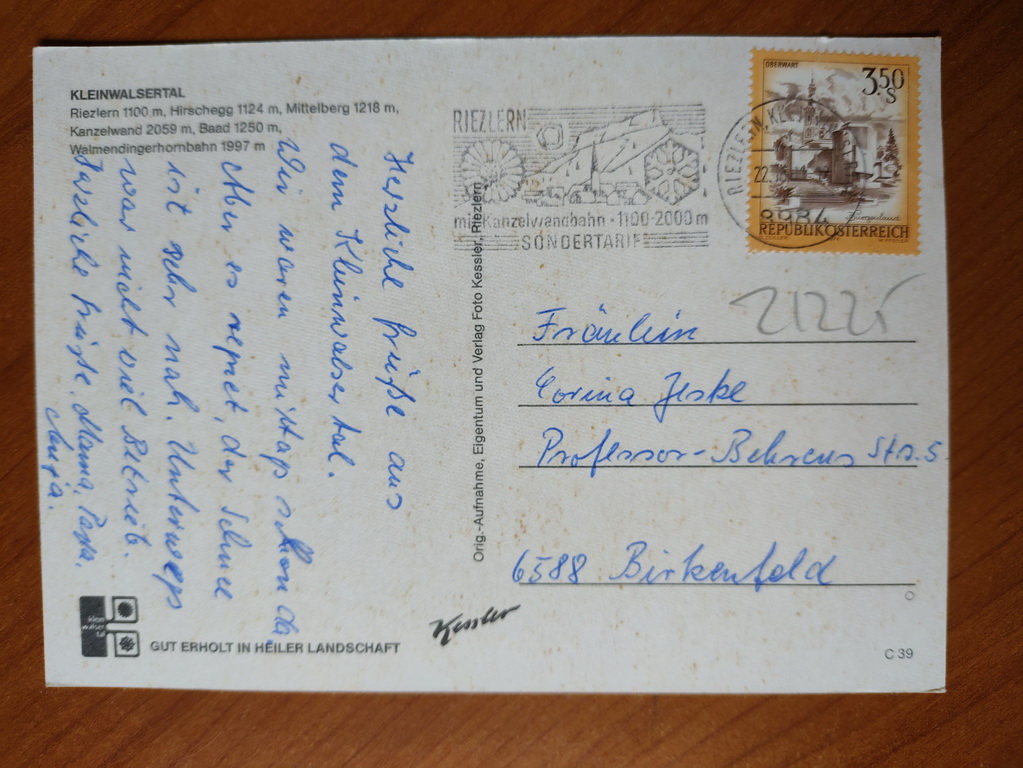 KLEINWALSERTAL
Riezlern 1100 m, Hirschegg 1124 m, Mittelberg 1218 m,
Kanzelwand 2059 m, Baad 1250 m,
Walmendingerhornbahn 1997 m
Herzliche Grüße aus
dem Kleinwalsertal.
Wir waren mittags schon da
Aber es regnet, der Schnee
ist sehr naß. Unterwegs
war nicht viel Betrieb.
Herzliche Grüße Mama, Papa,
Anja.
GUT ERHOLT IN HEILER LANDSCHAFT
Kessler
Orig.-Aufnahme, Eigentum und Verlag Foto Kessler, Riezlern
RIEZLERN
mit Kanzelwandbahn · 1100-2000 m
SONDERTARIF
RIEZLERN, KL
22.
6984
OBERWART
3.50
S
Burgenland
REPUBLIK ÖSTERREICH
21225
Fräulein
Corina Jeske
Professor-Behrens Str. 5
6588 Birkenfeld
C 39